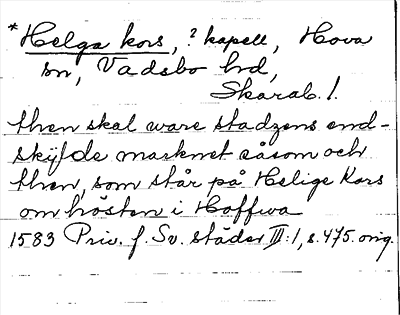 *Helga kors, ? kapell, Hova
sn, Vadsbo hd,
Skarab. l.
then skal ware stadzens end-
skÿlde marknet såsom och
then, som står på Helige Kors
om hösten i Hoffwa
1583 Priv. f. Sv. städer III:1, s. 475. orig.